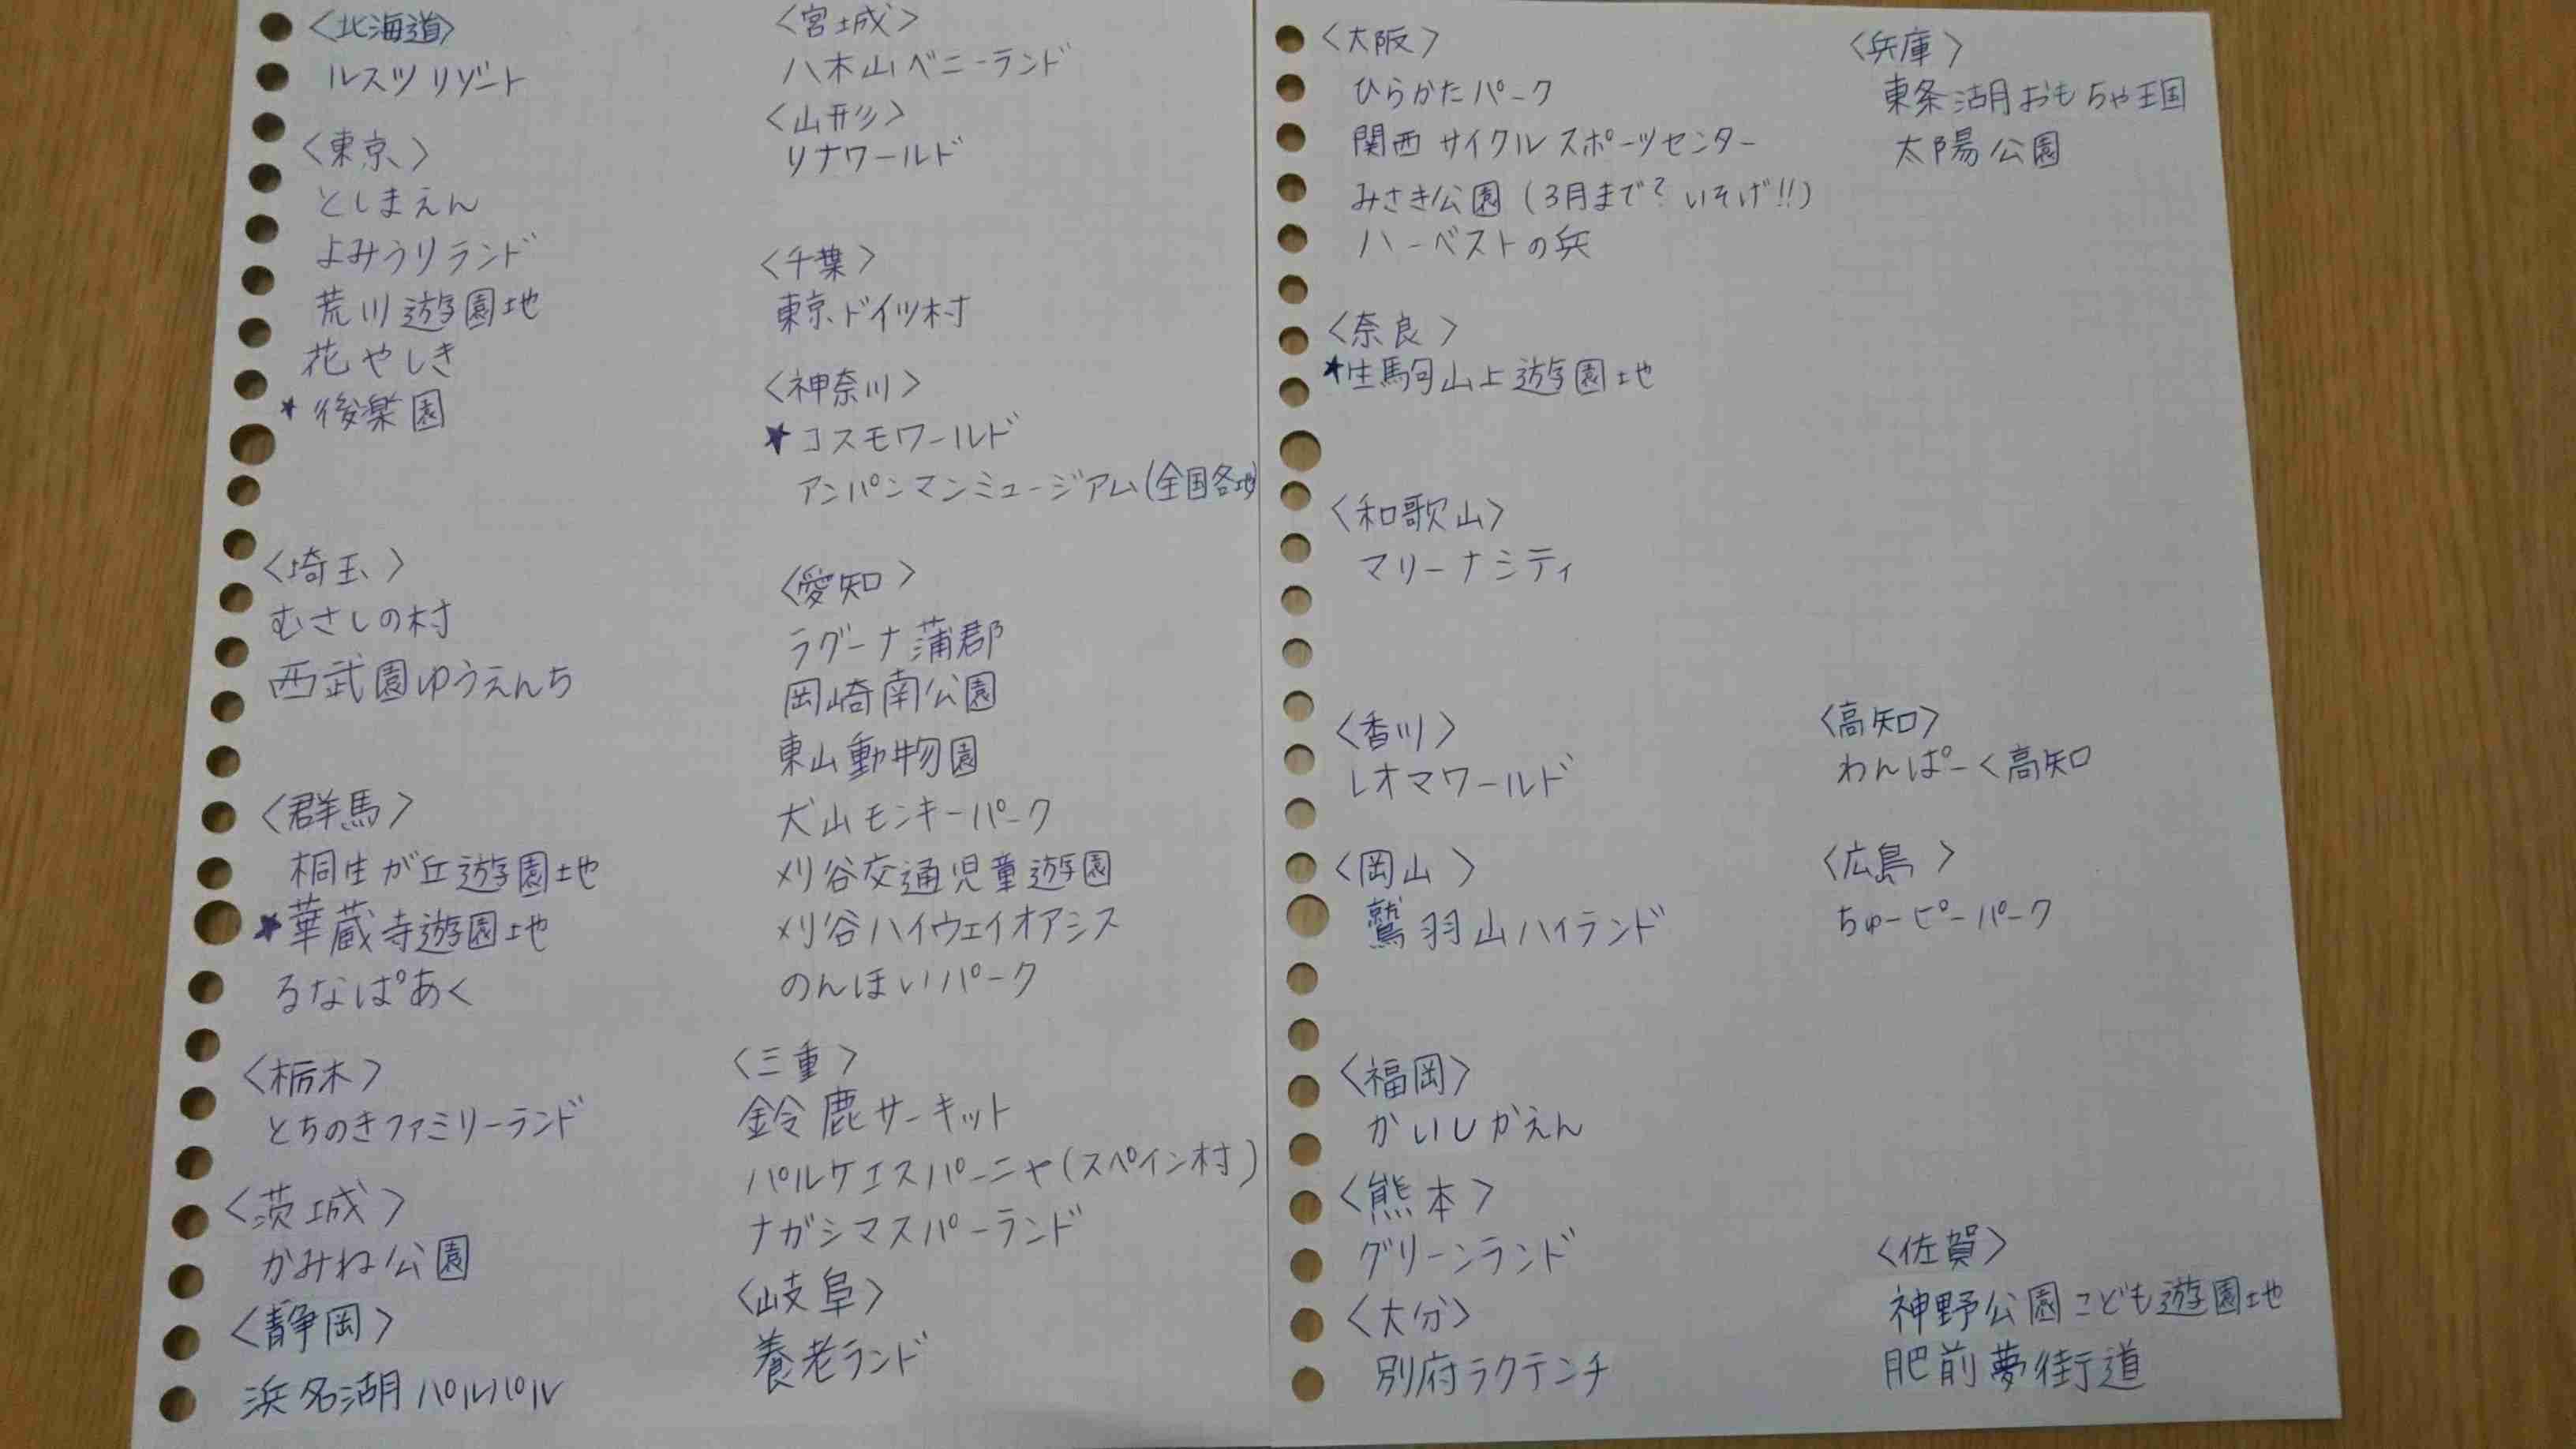 〈北海道〉
ルスツリゾート
〈東京〉
としまえん
よみうりランド
荒川遊園地
花やしき
★後楽園
〈埼玉〉
むさしの村
西武園ゆうえんち
〈群馬〉
桐生が丘遊園地
★華蔵寺遊園地
るなぱあく
〈栃木〉
とちのきファミリーランド
〈茨城〉
かみね公園
〈静岡〉
浜名湖パルパル
〈宮城〉
八木山ベニーランド
〈山形〉
リナワールド
〈千葉〉
東京ドイツ村
〈神奈川〉
★コスモワールド
アンパンマンミュージアム(全国各地)
〈愛知〉
ラグーナ蒲郡
岡崎南公園
東山動物園
犬山モンキーパーク
刈谷交通児童遊園
刈谷ハイウェイオアシス
のんほいパーク
〈三重〉
鈴鹿サーキット
パルケエスパーニャ(スペイン村)
ナガシマスパーランド
〈岐阜〉
養老ランド
〈大阪〉
ひらかたパーク
関西サイクルスポーツセンター
みさき公園(3月まで?いそげ!!)
ハーベストの兵
〈奈良〉
★生駒山上遊園地
〈和歌山〉
マリーナシティ
〈香川〉
レオマワールド
〈岡山〉
鷲羽山ハイランド
〈福岡〉
かいしかえん
〈熊本〉
グリーンランド
〈大分〉
別府ラクテンチ
〈兵庫〉
東条湖おもちゃ王国
太陽公園
〈高知〉
わんぱーく高知
〈広島〉
ちゅーピーパーク
〈佐賀〉
神野公園こども遊園地
肥前夢街道